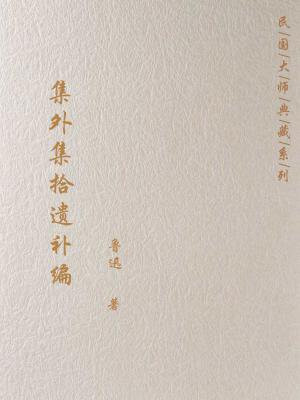 民|国|大|师|典|藏|系|列
集外集拾遗补编
鲁迅 著